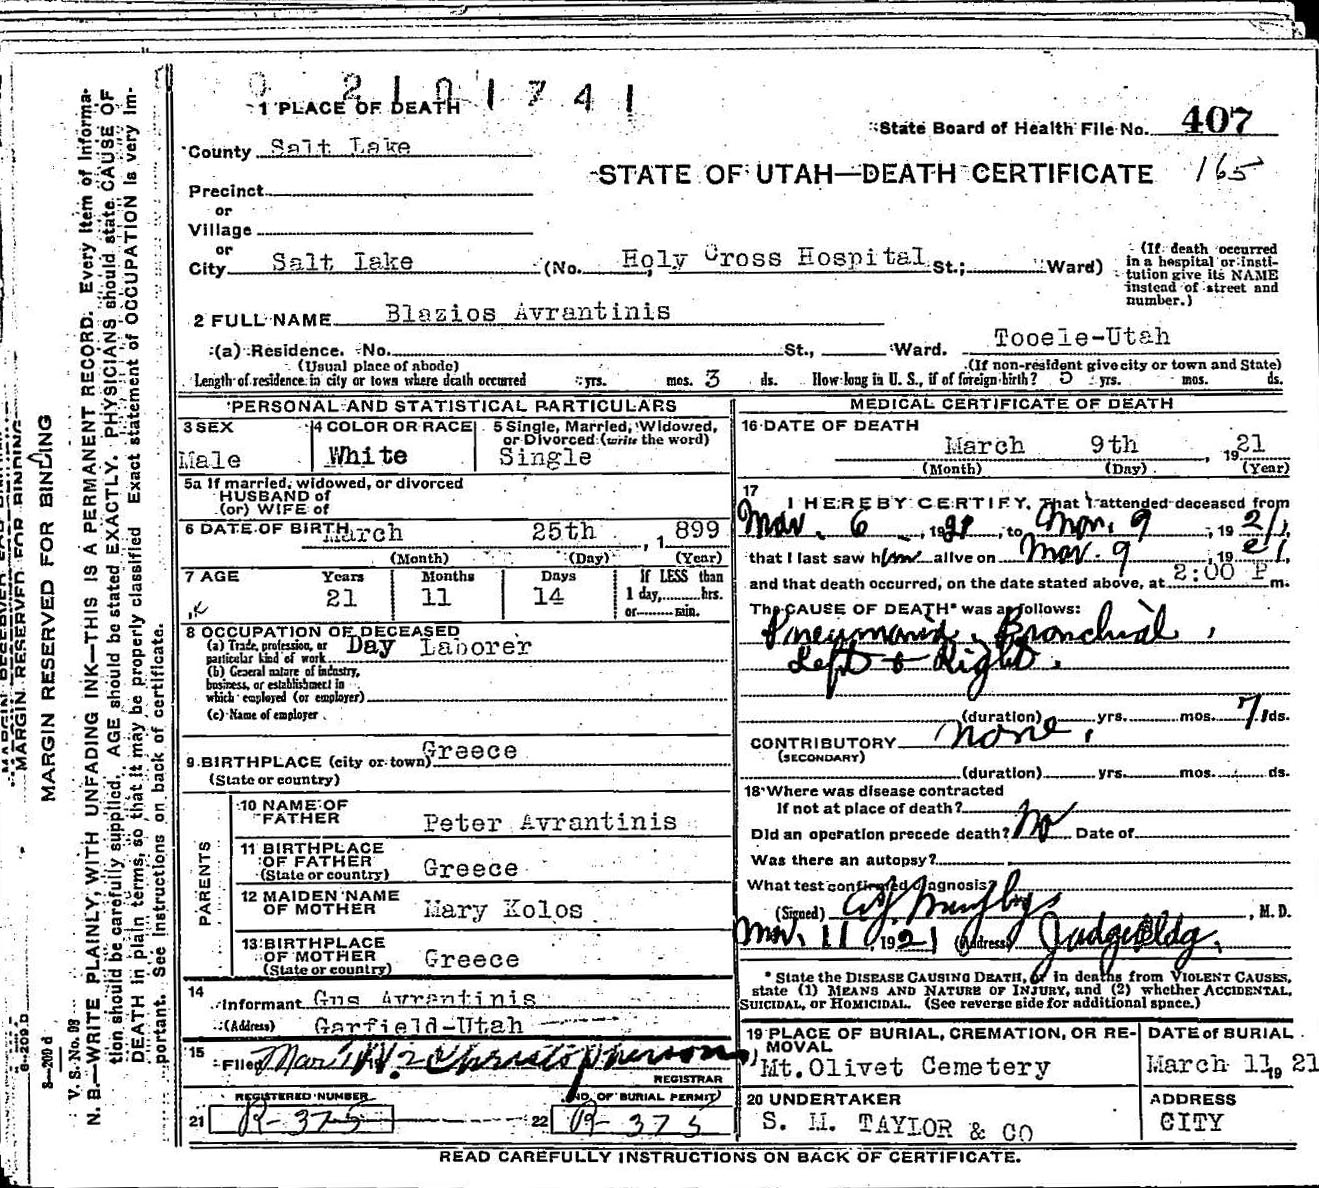 2 1 0 1 7 4 1
1 PLACE OF DEATH
State Board of Health File No. 407
County Salt Lake
STATE OF UTAH—DEATH CERTIFICATE 165
Precinct
or
Village
or
City Salt Lake (No. Holy Cross Hospital St.; Ward)
(If death occurred in a hospital or insti-
tution give its NAME
instead of street and
number.)
2 FULL NAME Blazios Avrantinis
(a) Residence. No. St., Ward. Tooele-Utah
(Usual place of abode) (If non-resident give city or town and State)
Length of residence in city or town where death occurred yrs. mos. 3 ds. How long in U. S., if of foreign birth? 5 yrs. mos. ds.
PERSONAL AND STATISTICAL PARTICULARS
3 SEX
Male
4 COLOR OR RACE
White
5 Single, Married, Widowed,
or Divorced (write the word)
Single
5a If married, widowed, or divorced
HUSBAND of
(or) WIFE of
6 DATE OF BIRTH March 25th, 1899
(Month) (Day) (Year)
7 AGE Years Months Days If LESS than
21 11 14 1 day, hrs.
or min.
8 OCCUPATION OF DECEASED
(a) Trade, profession, or
particular kind of work Day Laborer
(b) General nature of industry,
business, or establishment in
which employed (or employer)
(c) Name of employer
9 BIRTHPLACE (city or town) Greece
(State or country)
PARENTS
10 NAME OF
FATHER Peter Avrantinis
11 BIRTHPLACE
OF FATHER
(State or country) Greece
12 MAIDEN NAME
OF MOTHER Mary Kolos
13 BIRTHPLACE
OF MOTHER
(State or country) Greece
14
Informant Gus Avrantinis
(Address) Garfield-Utah
15
Filed Mar W. Christopherson
REGISTRAR
REGISTERED NUMBER NO. OF BURIAL PERMIT
21 R-375 22 R-375
MEDICAL CERTIFICATE OF DEATH
16 DATE OF DEATH
March 9th, 1921
(Month) (Day) (Year)
17
I HEREBY CERTIFY, That I attended deceased from
Mar. 6, 1921, to Mar. 9, 1921,
that I last saw him alive on Mar. 9, 1921,
and that death occurred, on the date stated above, at 2:00 P m.
The CAUSE OF DEATH* was as follows:
Pneumonia, Bronchial,
Left & Right.
(duration) yrs. mos. 7 ds.
CONTRIBUTORY None.
(SECONDARY)
(duration) yrs. mos. ds.
18 Where was disease contracted
If not at place of death?
Did an operation precede death? No Date of
Was there an autopsy?
What test confirmed diagnosis?
(Signed) , M. D.
Mar. 11, 1921 (Address) Judge Bldg.
* State the DISEASE CAUSING DEATH, or in deaths from VIOLENT CAUSES,
state (1) MEANS AND NATURE OF INJURY, and (2) whether ACCIDENTAL,
SUICIDAL, or HOMICIDAL. (See reverse side for additional space.)
19 PLACE OF BURIAL, CREMATION, OR RE-
MOVAL
Mt. Olivet Cemetery
DATE OF BURIAL
March 11, 1921
20 UNDERTAKER
S. M. TAYLOR & CO
ADDRESS
CITY
READ CAREFULLY INSTRUCTIONS ON BACK OF CERTIFICATE.
MARGIN RESERVED FOR BINDING
MARGIN RESERVED FOR BINDING
S—200 d
V. S. No. 98
N. B.—WRITE PLAINLY, WITH UNFADING INK—THIS IS A PERMANENT RECORD. Every item of informa-
tion should be carefully supplied. AGE should be stated EXACTLY. PHYSICIANS should state CAUSE OF
DEATH in plain terms, so that it may be properly classified. Exact statement of OCCUPATION is very im-
portant. See instructions on back of certificate.